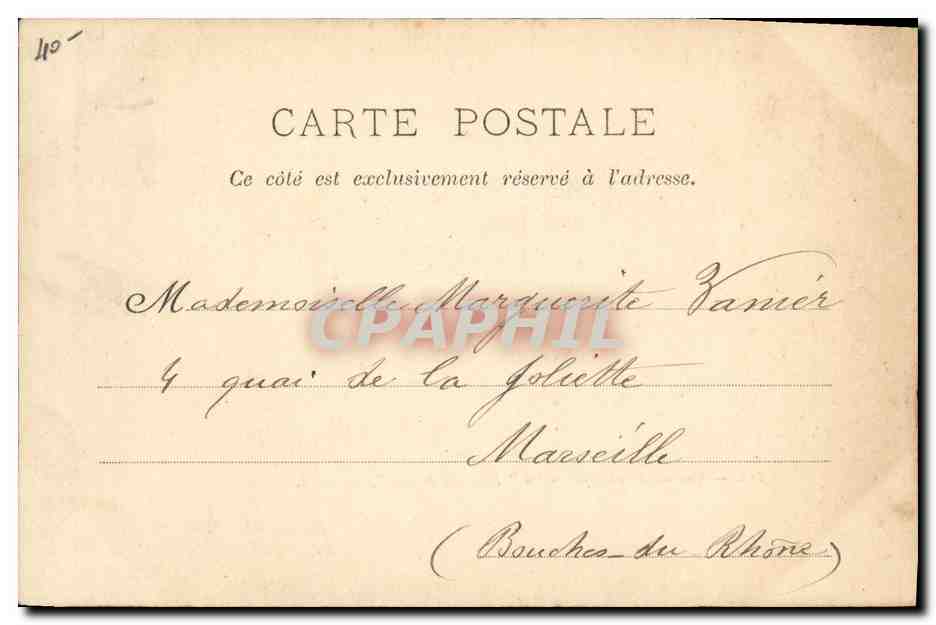 40-
CARTE POSTALE
Ce côté est exclusivement réservé à l'adresse.
Mademoiselle Marguerite
CPAPHIL
4 quai de la Joliette
Marseille
(Bouches-du Rhône)